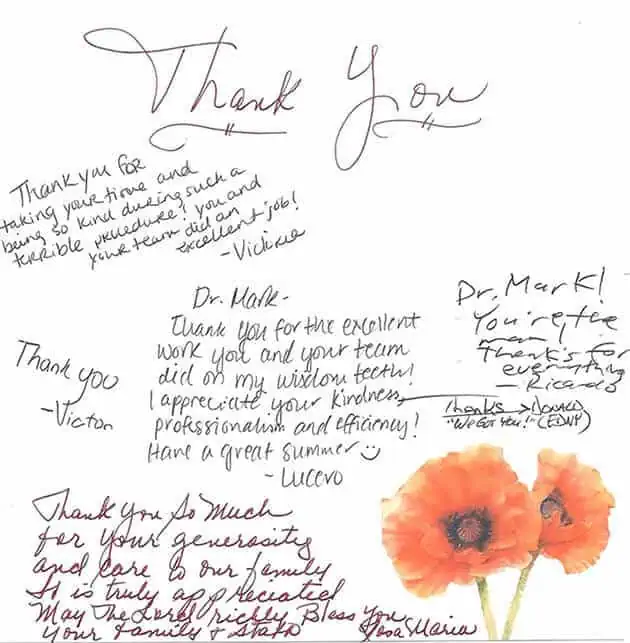 Thank You
Thank you for
taking your time and
being so kind during such a
terrible procedure! you and
your team did an
excellent job!
- Victoria
Dr. Mark-
Thank you for the excellent
work you and your team
did on my wisdom teeth!
I appreciate your kindness,
professionalism and efficiency!
Have a great summer
- Lucero
Thank you
-Victor
Dr. Mark!
You're the
man!
Thank's for
everything
- Ricardo
Thanks
"We Got You!"
Thank You So Much
for your generosity
and care to our family
It is truly appreciated
May The Lord richly Bless You
Your Family & Staff
Rosa Maria